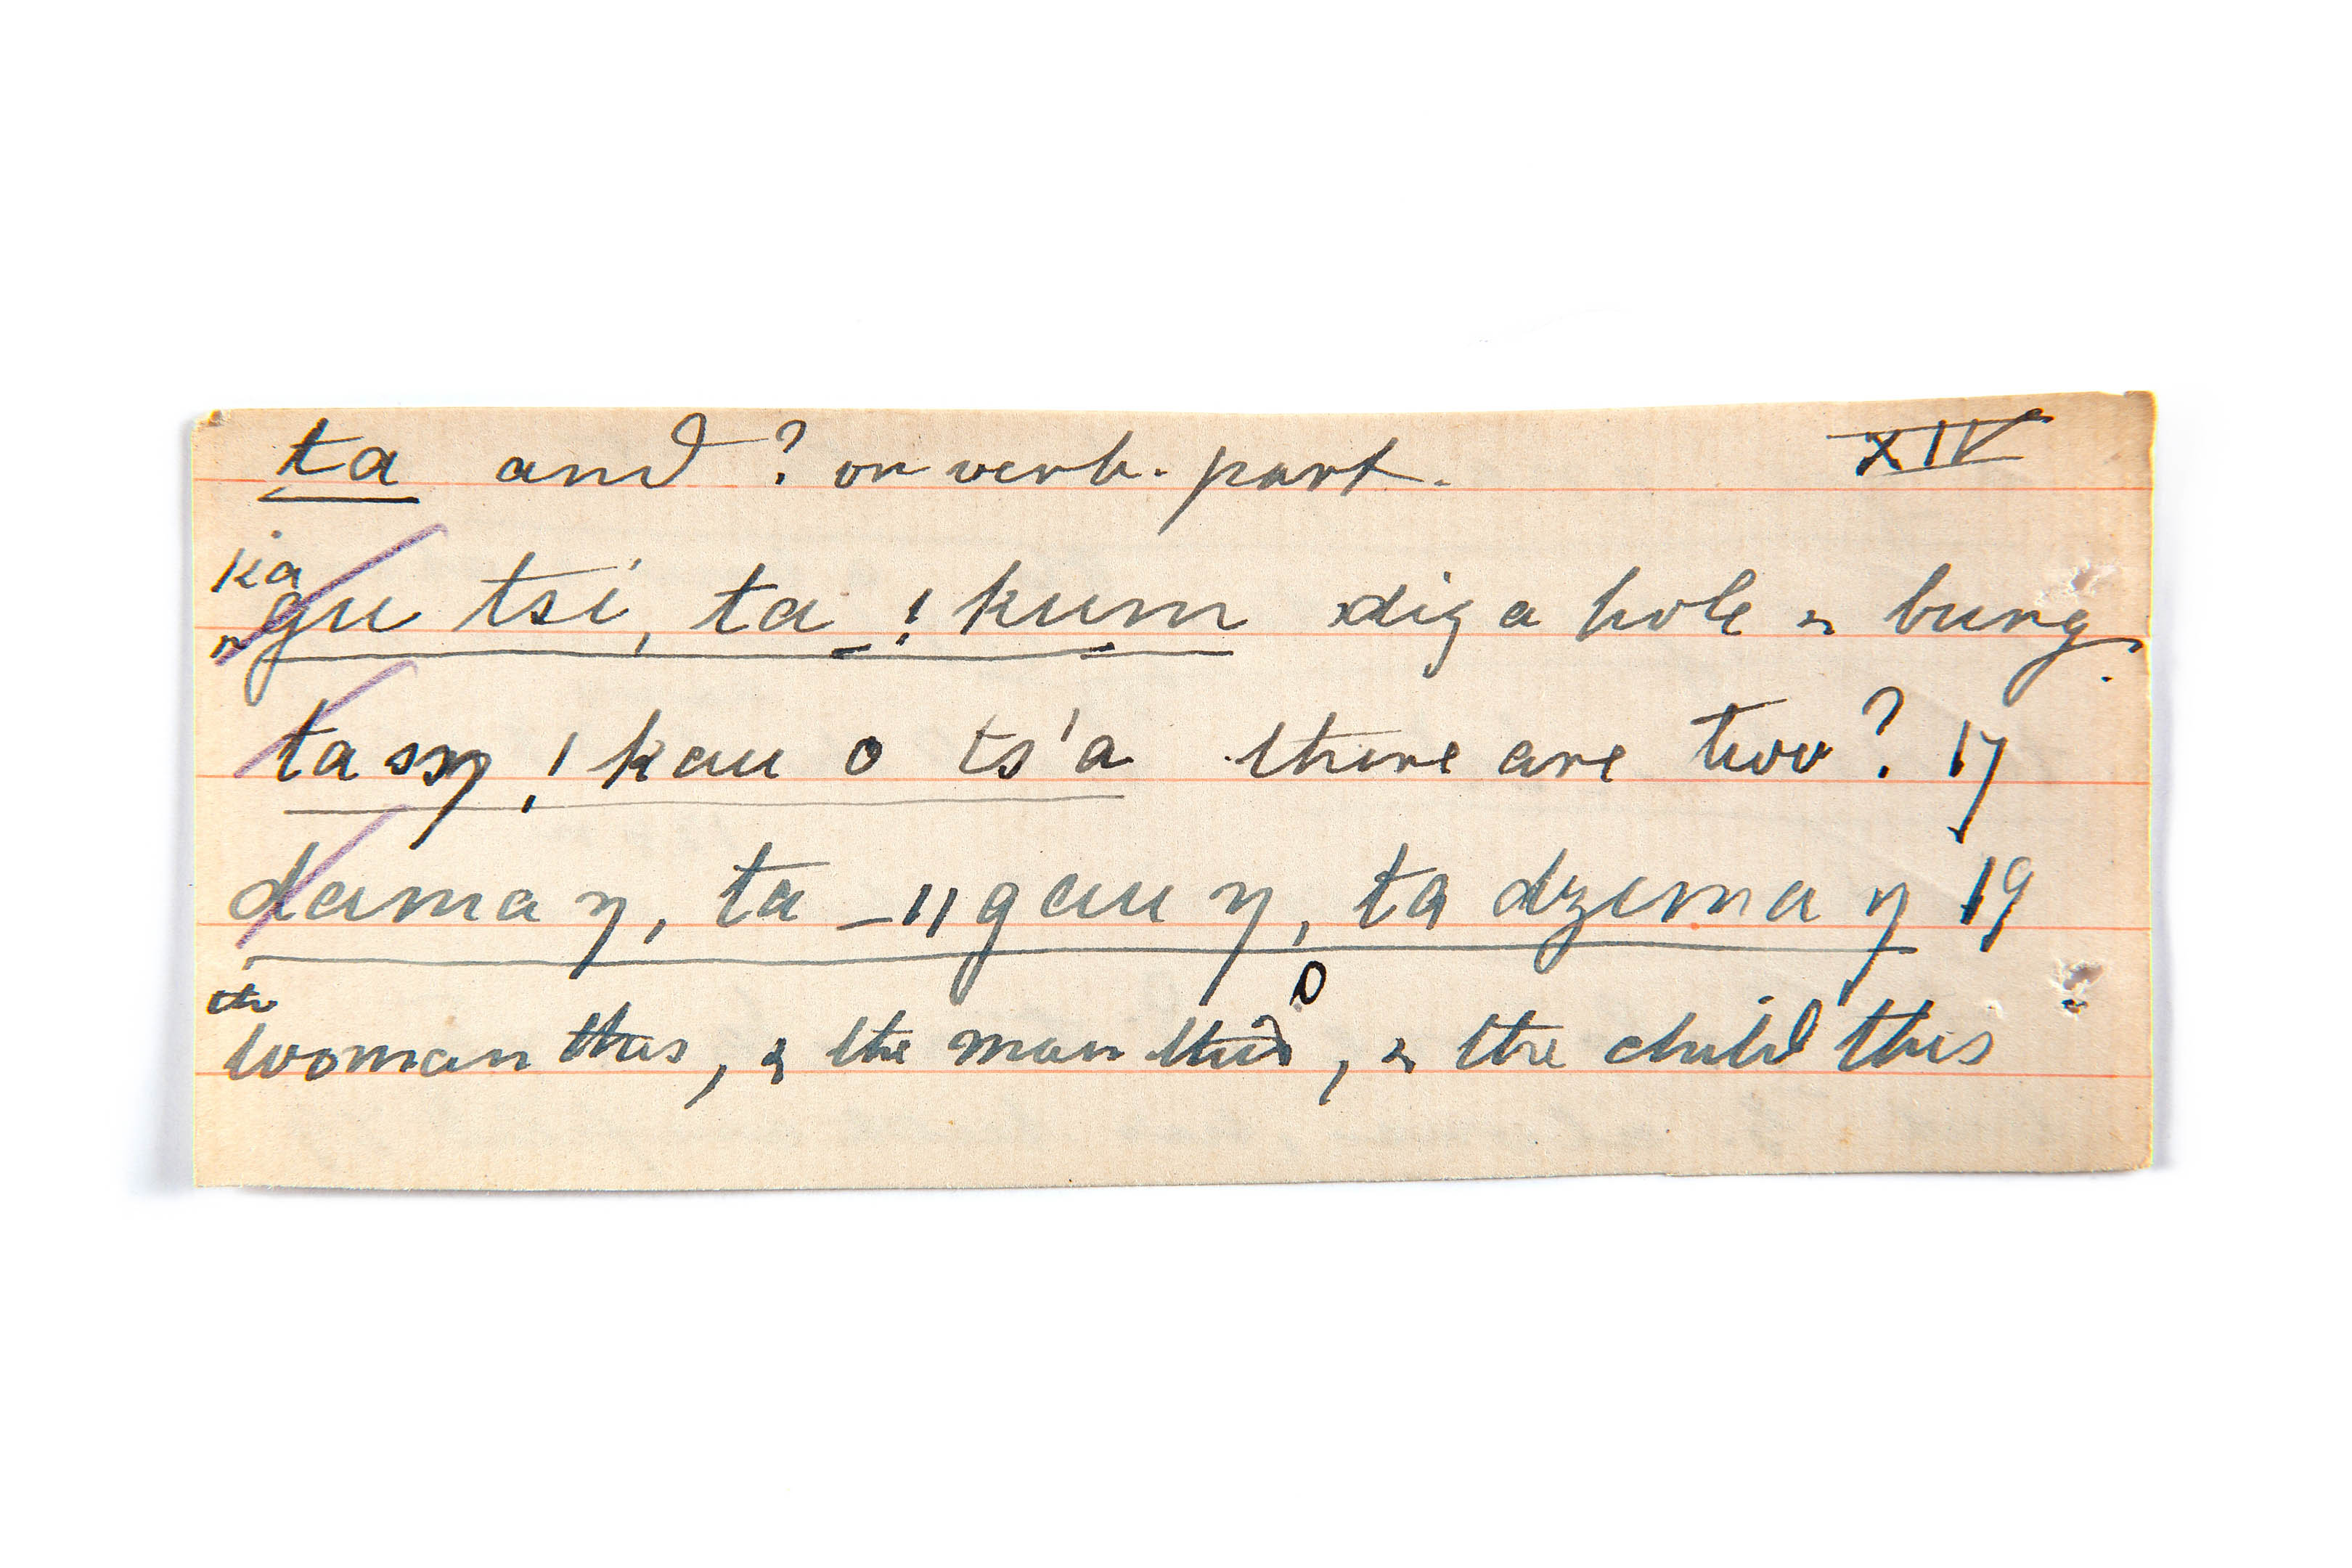 ta and ? or verb. part. XIV
ka
gu tsi, ta _!kum dig a hole & bury.
n
ta sŋ !kau o ts'a there are two? 17
dama ŋ, ta _ǁgau ŋ, ta dzema ŋ 19
the o
woman this, & the man this, & the child this